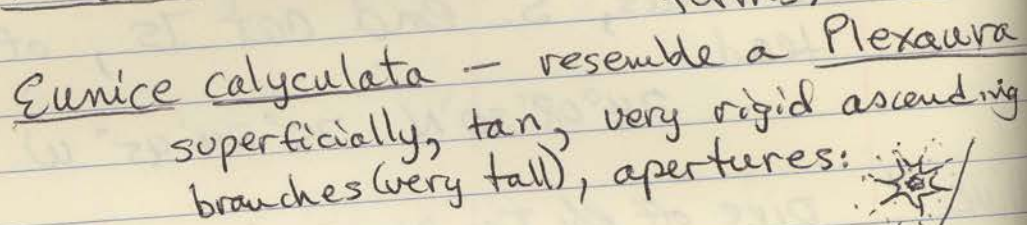 Eunice calyculata — resemble a Plexaura
superficially, tan, very rigid ascending
branches (very tall), apertures: